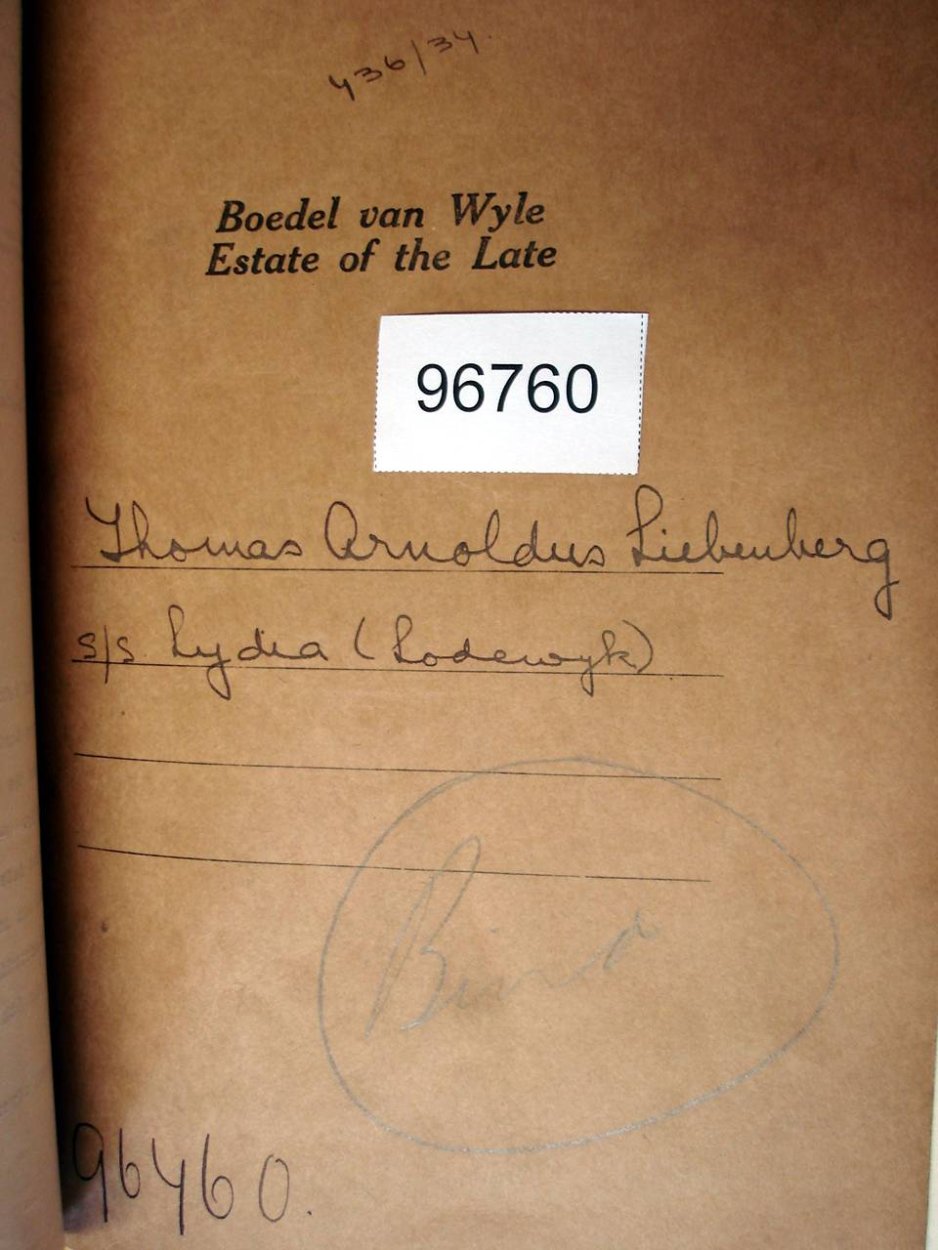 736/37.
Boedel van Wyle
Estate of the Late
96760
Thomas Arnoldus Liebenberg
s/s Lydia (Lodewyk)
Bind
96760.